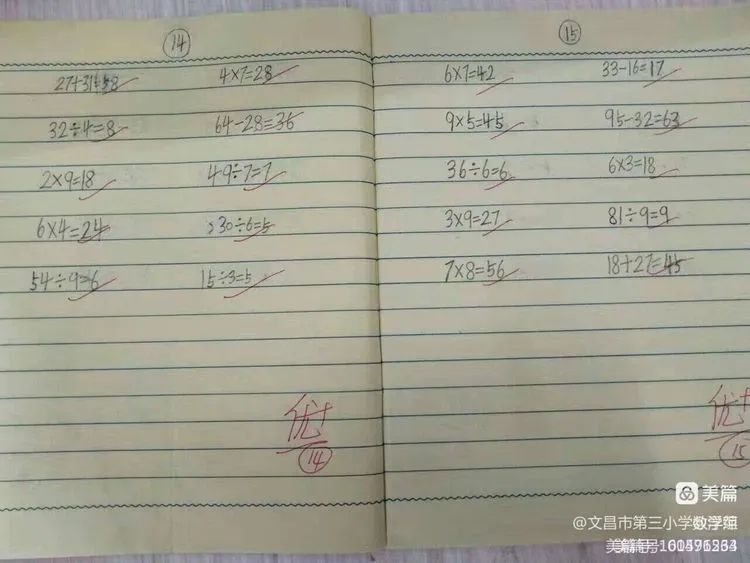 14
27+31=58 4×7=28
32÷4=8 64-28=36
2×9=18 49÷7=7
6×4=24 30÷6=5
54÷9=6 15÷3=5
优+
14
15
6×7=42 33-16=17
9×5=45 95-32=63
36÷6=6 6×3=18
3×9=27 81÷9=9
7×8=56 18+27=45
优+
15
美篇
@文昌市第三小学
美篇号